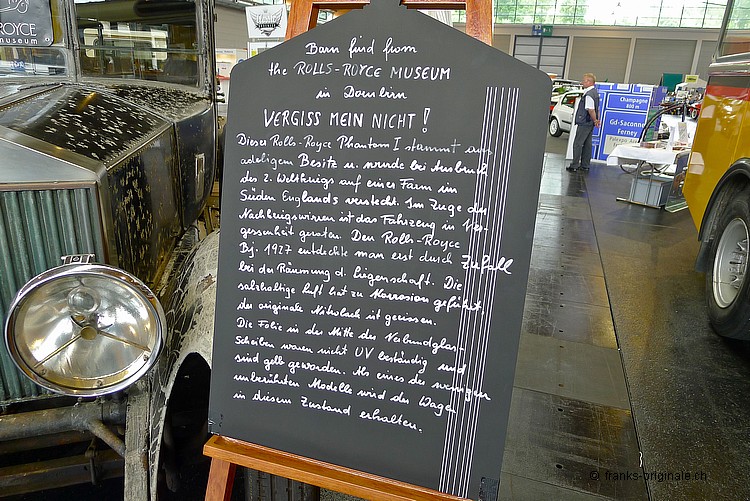 ROYCE
museum
Barn find from
the ROLLS-ROYCE MUSEUM
in Dornbirn
VERGISS MEIN NICHT!
Dieser Rolls-Royce Phantom I stammt aus
adeligem Besitz u. wurde bei Ausbruch
des 2. Weltkriegs auf einer Farm im
Süden Englands versteckt. Im Zuge der
Nachkriegswirren ist das Fahrzeug in Ver-
gessenheit geraten. Den Rolls-Royce
Bj. 1927 entdeckte man erst durch Zufall
bei der Räumung d. Liegenschaft. Die
salzhaltige Luft hat zu Korrosion geführt,
der originale Nitrolack ist gerissen.
Die Folie in der Mitte der Verbundglas-
Scheiben waren nicht UV beständig und
sind gelb geworden. Als eines der wenigen
unberührten Modelle wird der Wagen
in diesem Zustand erhalten.
Champagne
800 m
Gd-Saconnex
Ferney
Palexpo
© franks-originale.ch